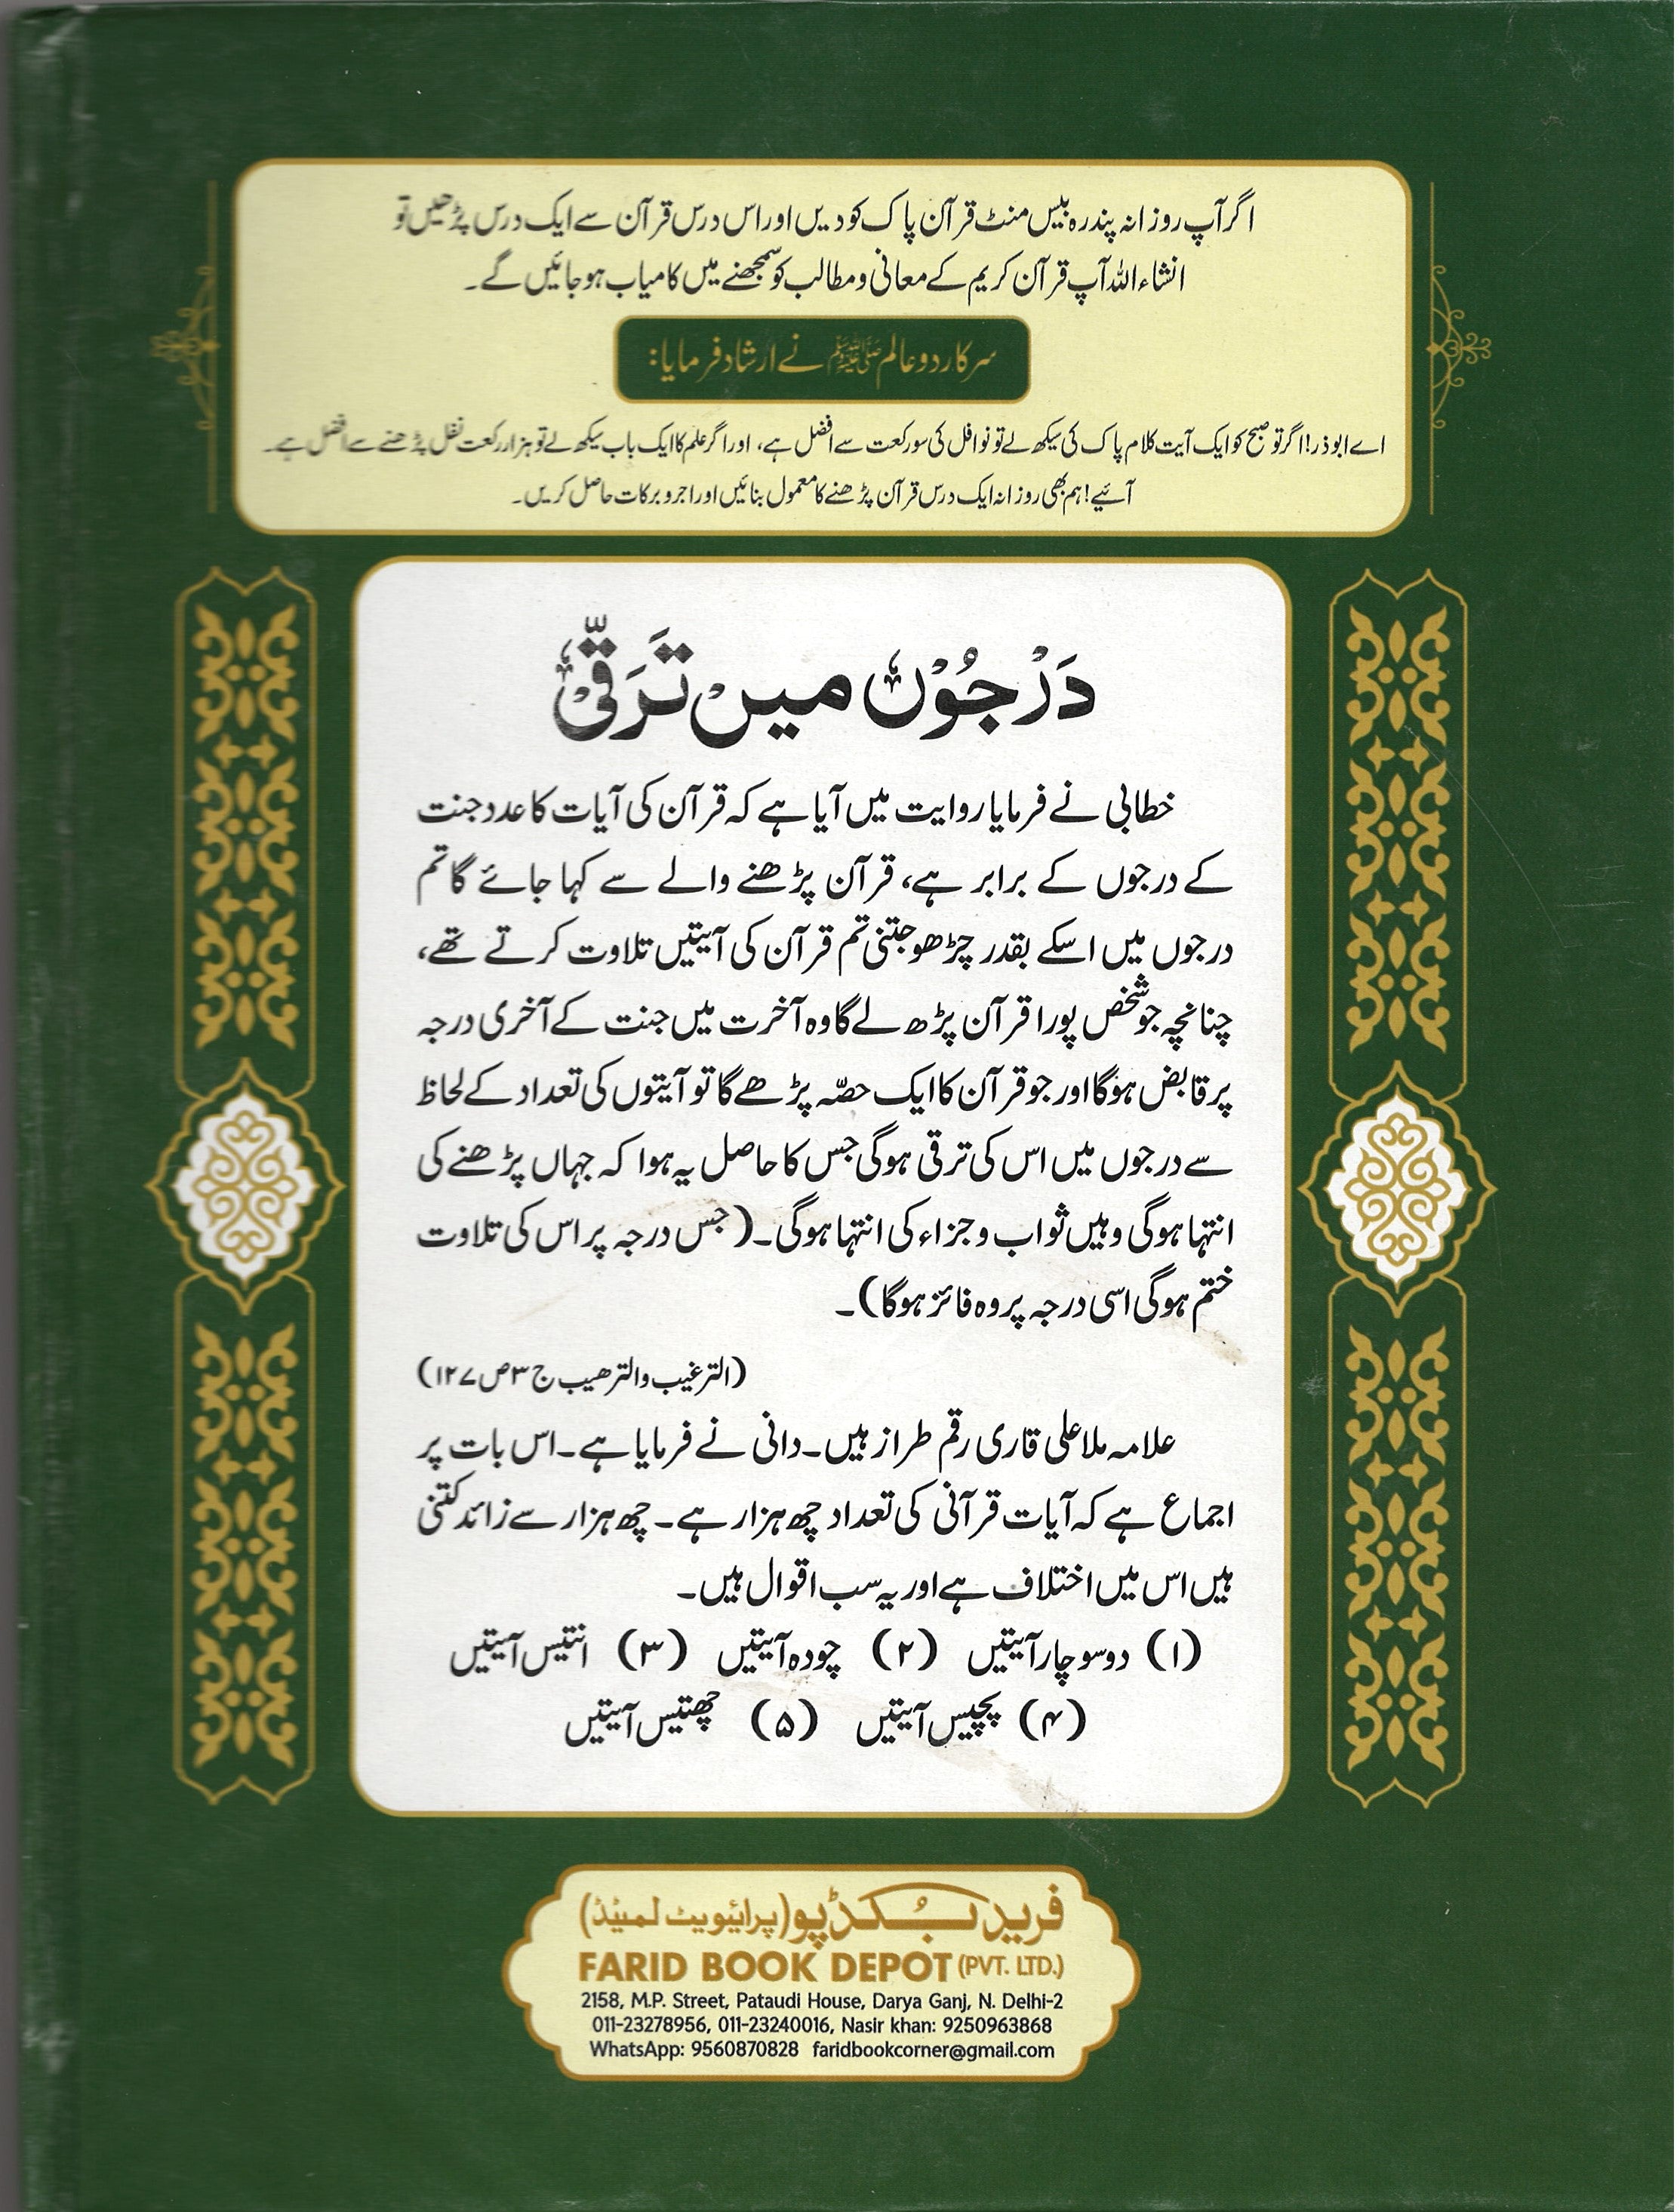 اگر آپ روزانہ پندرہ بیس منٹ قرآن پاک کو دیں اور اس درس قرآن سے ایک درس پڑھیں تو
انشاء اللہ آپ قرآن کریم کے معانی و مطالب کو سمجھنے میں کامیاب ہو جائیں گے۔
سرکار دو عالم ﷺ نے ارشاد فرمایا:
اے ابوذر! اگر تو صبح کو ایک آیت کلام پاک کی سیکھ لے تو نوافل کی سو رکعت سے افضل ہے، اور اگر علم کا ایک باب سیکھ لے تو ہزار رکعت نفل پڑھنے سے افضل ہے۔
آئیے! ہم بھی روزانہ ایک درس قرآن پڑھنے کا معمول بنائیں اور اجر و برکات حاصل کریں۔
دَرْجُوْںْ میںْ تَرَقّیْ
خطابی نے فرمایا روایت میں آیا ہے کہ قرآن کی آیات کا عدد جنت
کے درجوں کے برابر ہے، قرآن پڑھنے والے سے کہا جائے گا تم
درجوں میں اسکے بقدر چڑھو جتنی تم قرآن کی آیتیں تلاوت کرتے تھے،
چنانچہ جو شخص پورا قرآن پڑھ لے گا وہ آخرت میں جنت کے آخری درجہ
پر قابض ہوگا اور جو قرآن کا ایک حصّہ پڑھے گا تو آیتوں کی تعداد کے لحاظ
سے درجوں میں اس کی ترقی ہوگی جس کا حاصل یہ ہوا کہ جہاں پڑھنے کی
انتہا ہوگی وہیں ثواب و جزاء کی انتہا ہوگی۔ (جس درجہ پر اس کی تلاوت
ختم ہوگی اسی درجہ پر وہ فائز ہوگا)۔
(الترغیب والترھیب ج ۳ ص ۱۲۷)
علامہ ملا علی قاری رقم طراز ہیں۔ دانی نے فرمایا ہے۔ اس بات پر
اجماع ہے کہ آیات قرآنی کی تعداد چھ ہزار ہے۔ چھ ہزار سے زائد کتنی
ہیں اس میں اختلاف ہے اور یہ سب اقوال ہیں۔
(۱) دو سو چار آیتیں (۲) چودہ آیتیں (۳) انتیس آیتیں
(۴) پچیس آیتیں (۵) چھتیس آیتیں
فرید بُکڈپو (پرائیویٹ لمیٹڈ)
FARID BOOK DEPOT (PVT. LTD.)
2158, M.P. Street, Pataudi House, Darya Ganj, N. Delhi-2
011-23278956, 011-23240016, Nasir khan: 9250963868
WhatsApp: 9560870828 faridbookcorner@gmail.com